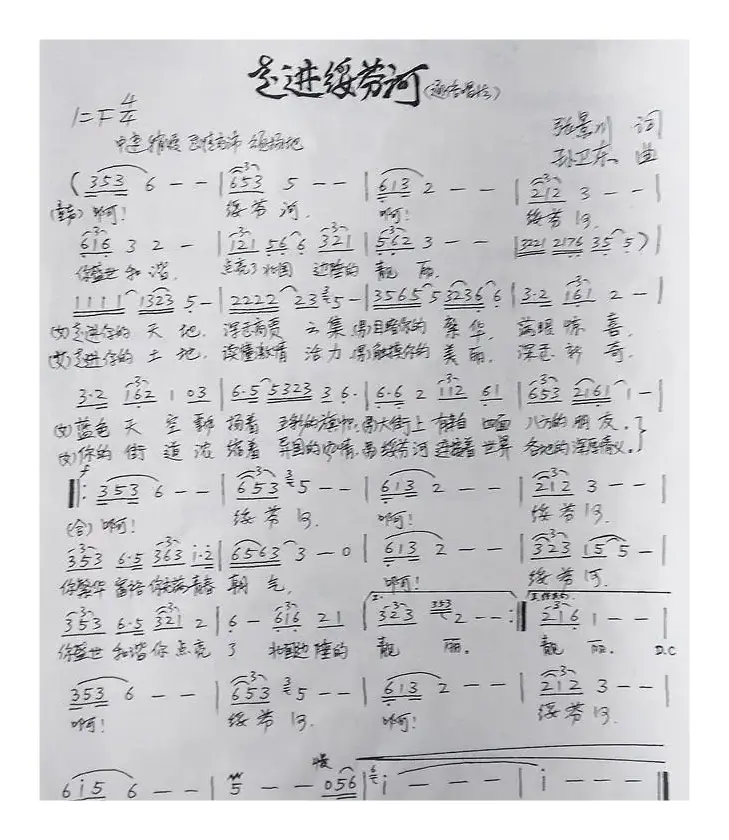 走进绥芬河(通俗唱法)
1=F 4/4
张景川 词
中速 稍慢
孙卫东 曲
( 353 6 - - | 653 5 - - | 613 2 - - | 212 3 - - |
啊! 绥芬河. 啊! 绥芬河.
616 3 2 - | 121 56 6 321 | 562 3 - - | 3221 2176 35 5 ) |
你盛世 和谐. 点亮了北国 边陲的 靓 丽.
1111 1323 5 - | 2222 23 5 - | 3565 5 3236 6 | 3·2 161 2 - |
(女)走进你的 天 地. 云集 (男)目睹你的 繁华. 惊 喜.
(女)走进你的 土 地. 读懂激情 活力 (男)触摸你的 美丽. 新 奇.
3·2 162 1 03 | 6·5 5323 3 6· | 6·6 2 112 61 | 653 2161 1 - |
(女)蓝色 天 空 飘 扬着 的旗帜. (男)大街上 有来自 四面 八方的 朋友.
(女)你的 街 道 浓 缩着 异国的 风情. (男)绥芬河 连接着 世界 各地的 深厚情义.
f
‖: 353 6 - - | 653 5 - - | 613 2 - - | 212 3 - - |
(合)啊! 绥芬河. 啊! 绥芬河.
353 6·5 363 i·2 | 6563 3 - 0 | 613 2 - - | 323 15 5 - |
你繁华 富裕 你充满 青春 朝 气. 啊! 绥芬河.
353 6·5 321 2 | 6 - 616 21 | 323 353 2 - - :‖ 216 1 - - |
你盛世 和谐 你 点亮 了 北国边陲的 靓 丽. 靓 丽. D.C
353 6 - - | 653 5 - - | 613 2 - - | 212 3 - - |
啊! 绥芬河. 啊! 绥芬河.
慢
6i5 6 - - | 5 - - 056 | i - - - | i - - - ‖